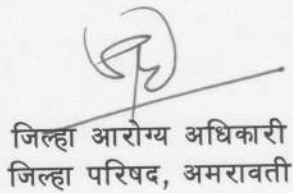 जिल्हा आरोग्य अधिकारी
जिल्हा परिषद, अमरावती